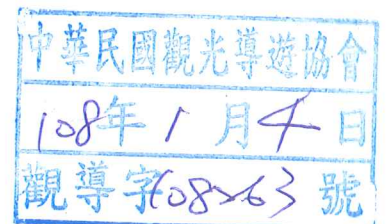 中華民國觀光導遊協會
108年1月4日
觀導字108263號